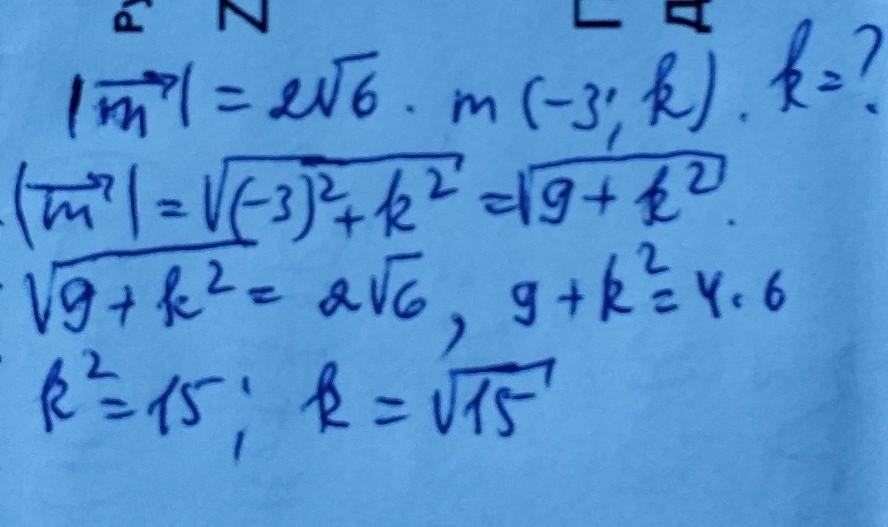 |m⃗| = 2√6 . m (-3; k) . k = ?
|m⃗| = √(-3)² + k² = √9 + k² .
√9 + k² = 2√6 , 9 + k² = 4 · 6
k² = 15 ; k = √15